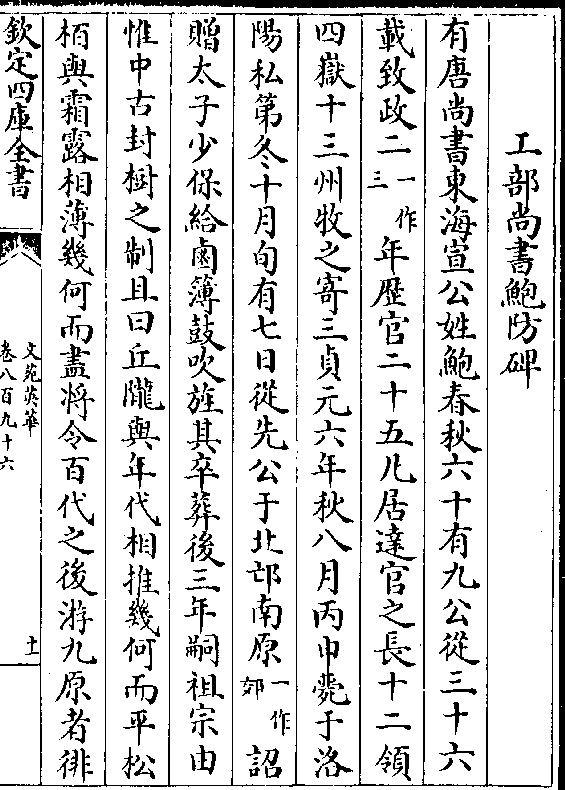 工部尚書鮑防碑
有唐尚書東海宣公姓鮑春秋六十有九公從三十六
載致政二一作三年歷官二十五凡居達官之長十二領
四嶽十三州牧之寄三貞元六年秋八月丙申薨于洛
陽私第冬十月旬有七日從先公于北邙南原一作郊詔
贈太子少保給鹵簿鼓吹旌其卒葬後三年嗣祖宗由
惟中古封樹之制且曰丘隴與年代相推幾何而平松
栢與霜露相薄幾何而盡将令百代之後游九原者徘
欽定四庫全書
文苑英華
卷八百九十六
十一